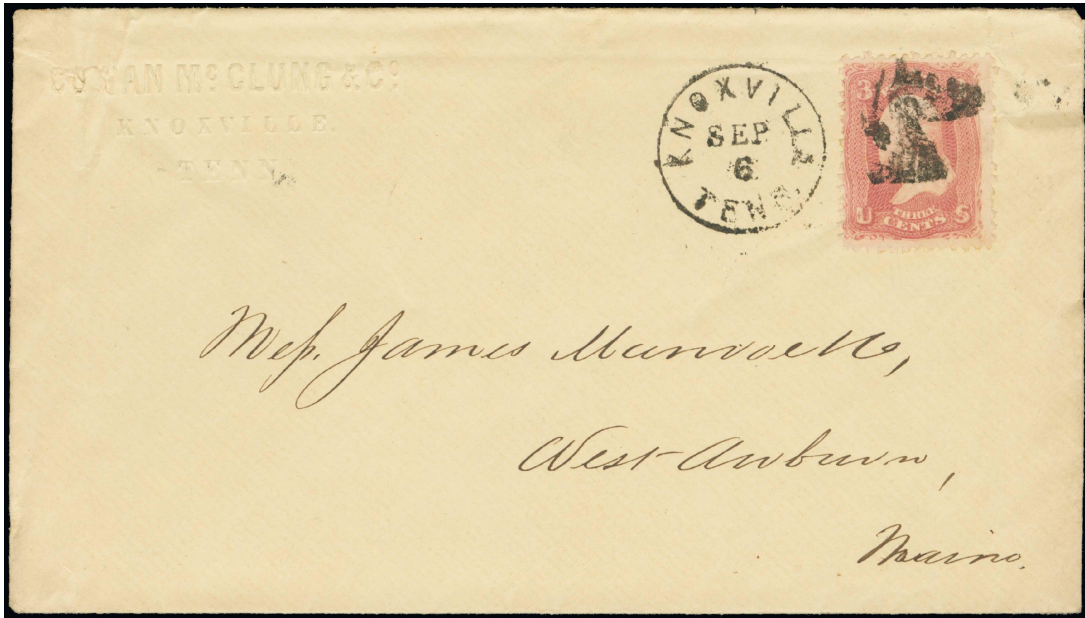 COWAN McCLUNG & Co.
KNOXVILLE.
TENN.
KNOXVILLE
SEP
6
TENN.
3
U THREE S
CENTS
Mess. James Munroe & Co,
West Auburn,
Maine.